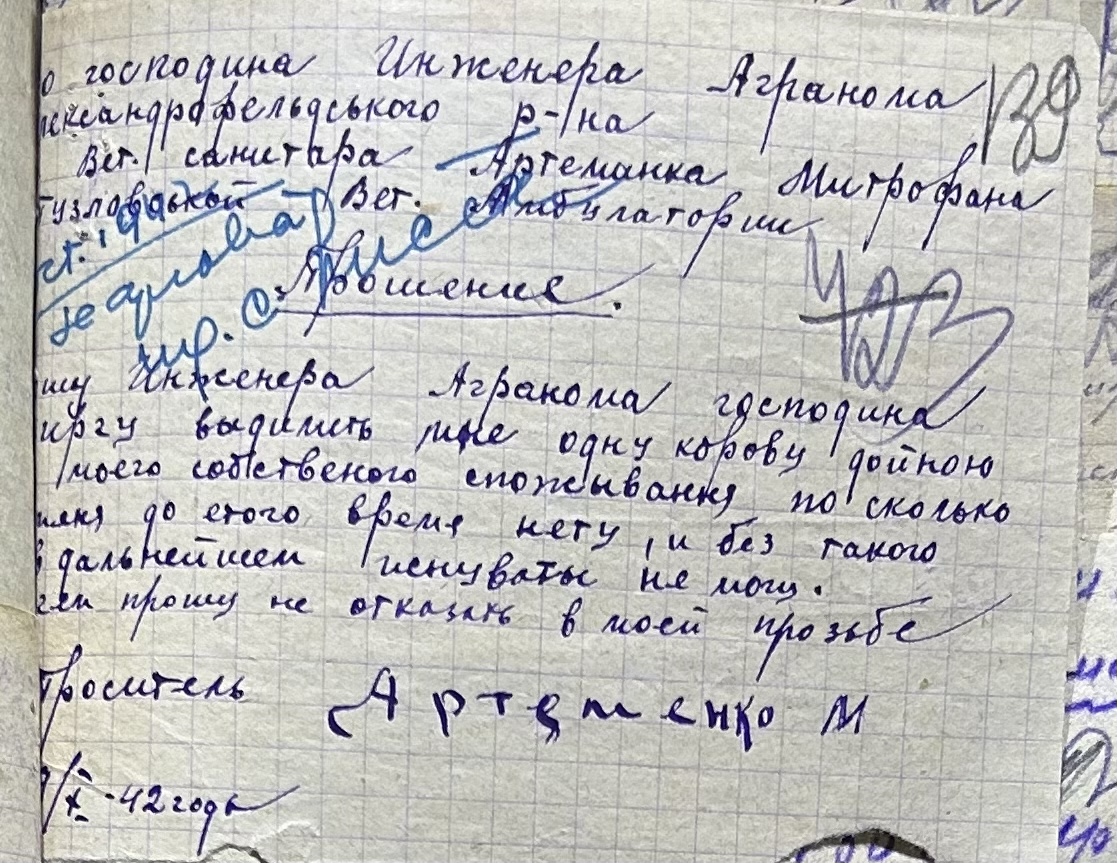 о господина Инженера Агранома
лександрофельдського р-на
Вет. санитара Артеманка Митрофана
тузловської Вет. Амбулатории
Прошение.
шу Инженера Агранома господина
иргу выдилить мне одну корову дойною
моего собственого споживання по сколько
меня до етого время нету, и без такого
в дальнейшем існувать не могу.
чем прошу не отказать в моей прозьбе
Проситель Артеменко М
/X-42 года
139